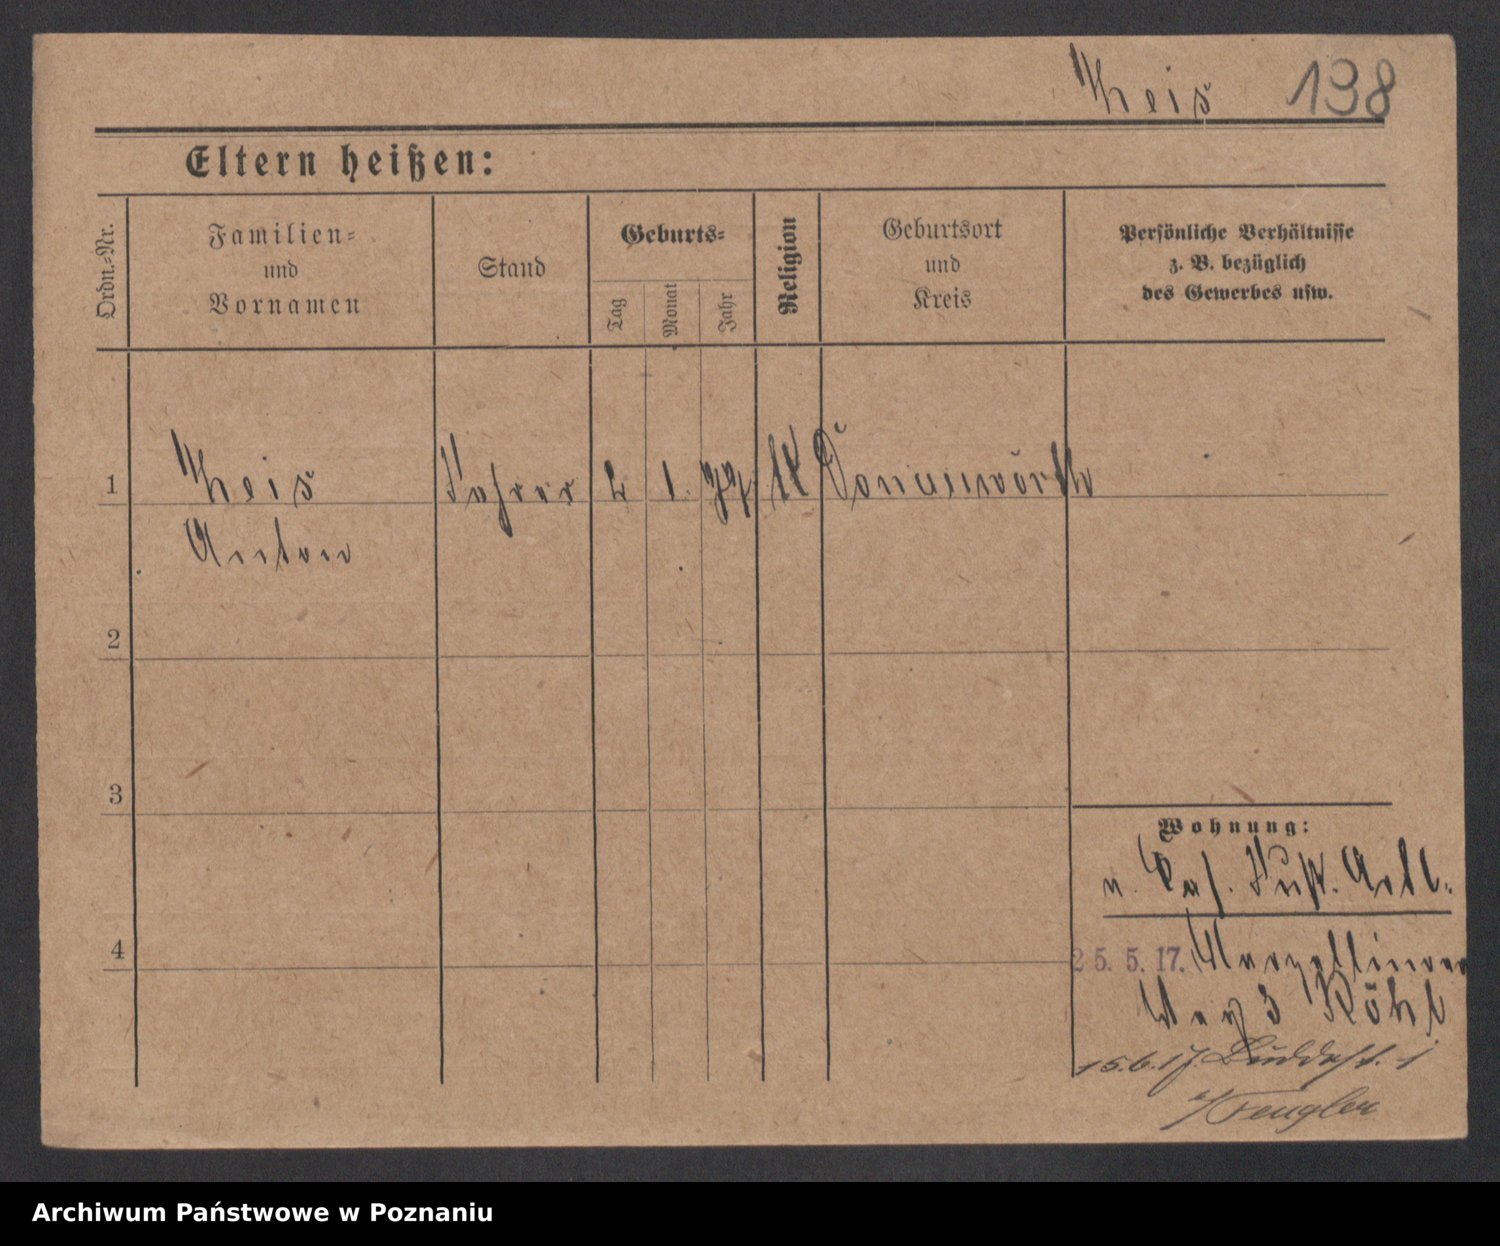 Theis 138
Eltern heißen:
Ordn.-Nr.
Familien=
und
Vornamen
Stand
Geburts=
Tag
Monat
Jahr
Religion
Geburtsort
und
Kreis
Persönliche Verhältnisse
z. B. bezüglich
des Gewerbes usw.
1 Theis 2 1. K Donauwörth
Anton
2
3
Wohnung:
4
25. 5. 17.
Weg 3 Röhl
15.6.17.
Archiwum Państwowe w Poznaniu